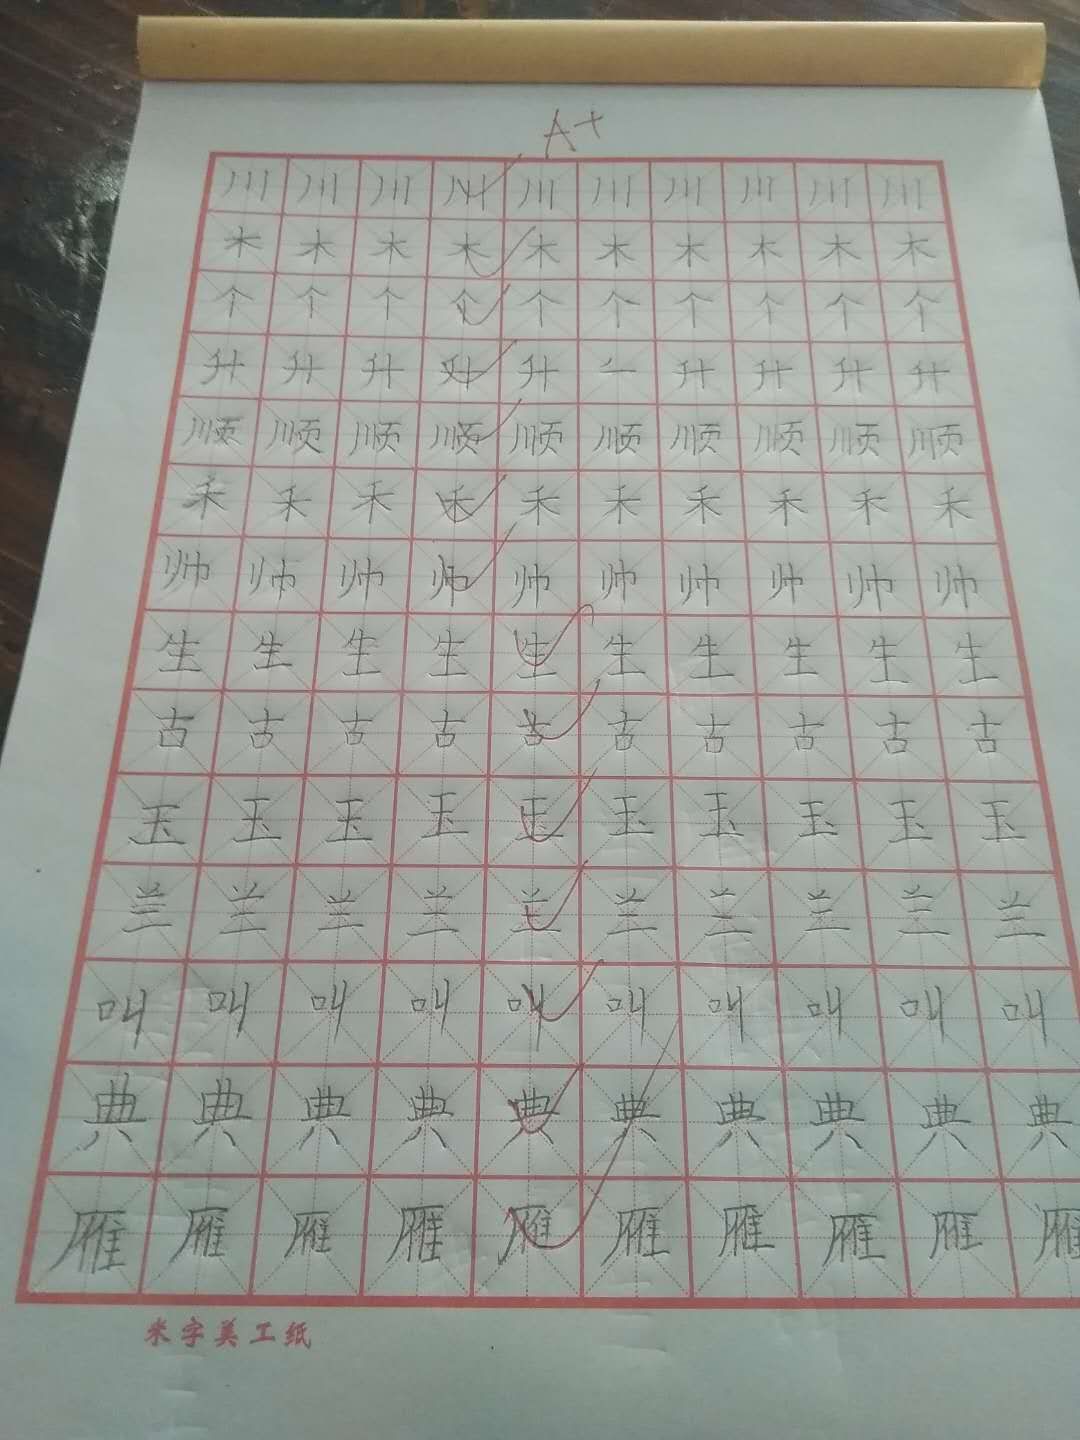 A+
川川川川川川川川川川
木木木木木木木木木木
个个个个个个个个个个
升升升升升𠂉升升升升
顺顺顺顺顺顺顺顺顺顺
禾禾禾禾禾禾禾禾禾禾
帅帅帅帅帅帅帅帅帅帅
生生生生生生生生生生
古古古古古古古古古古
玉玉玉玉玉玉玉玉玉玉
兰兰兰兰兰兰兰兰兰兰
叫叫叫叫叫叫叫叫叫叫
典典典典典典典典典典
雁雁雁雁雁雁雁雁雁雁
米字美工纸